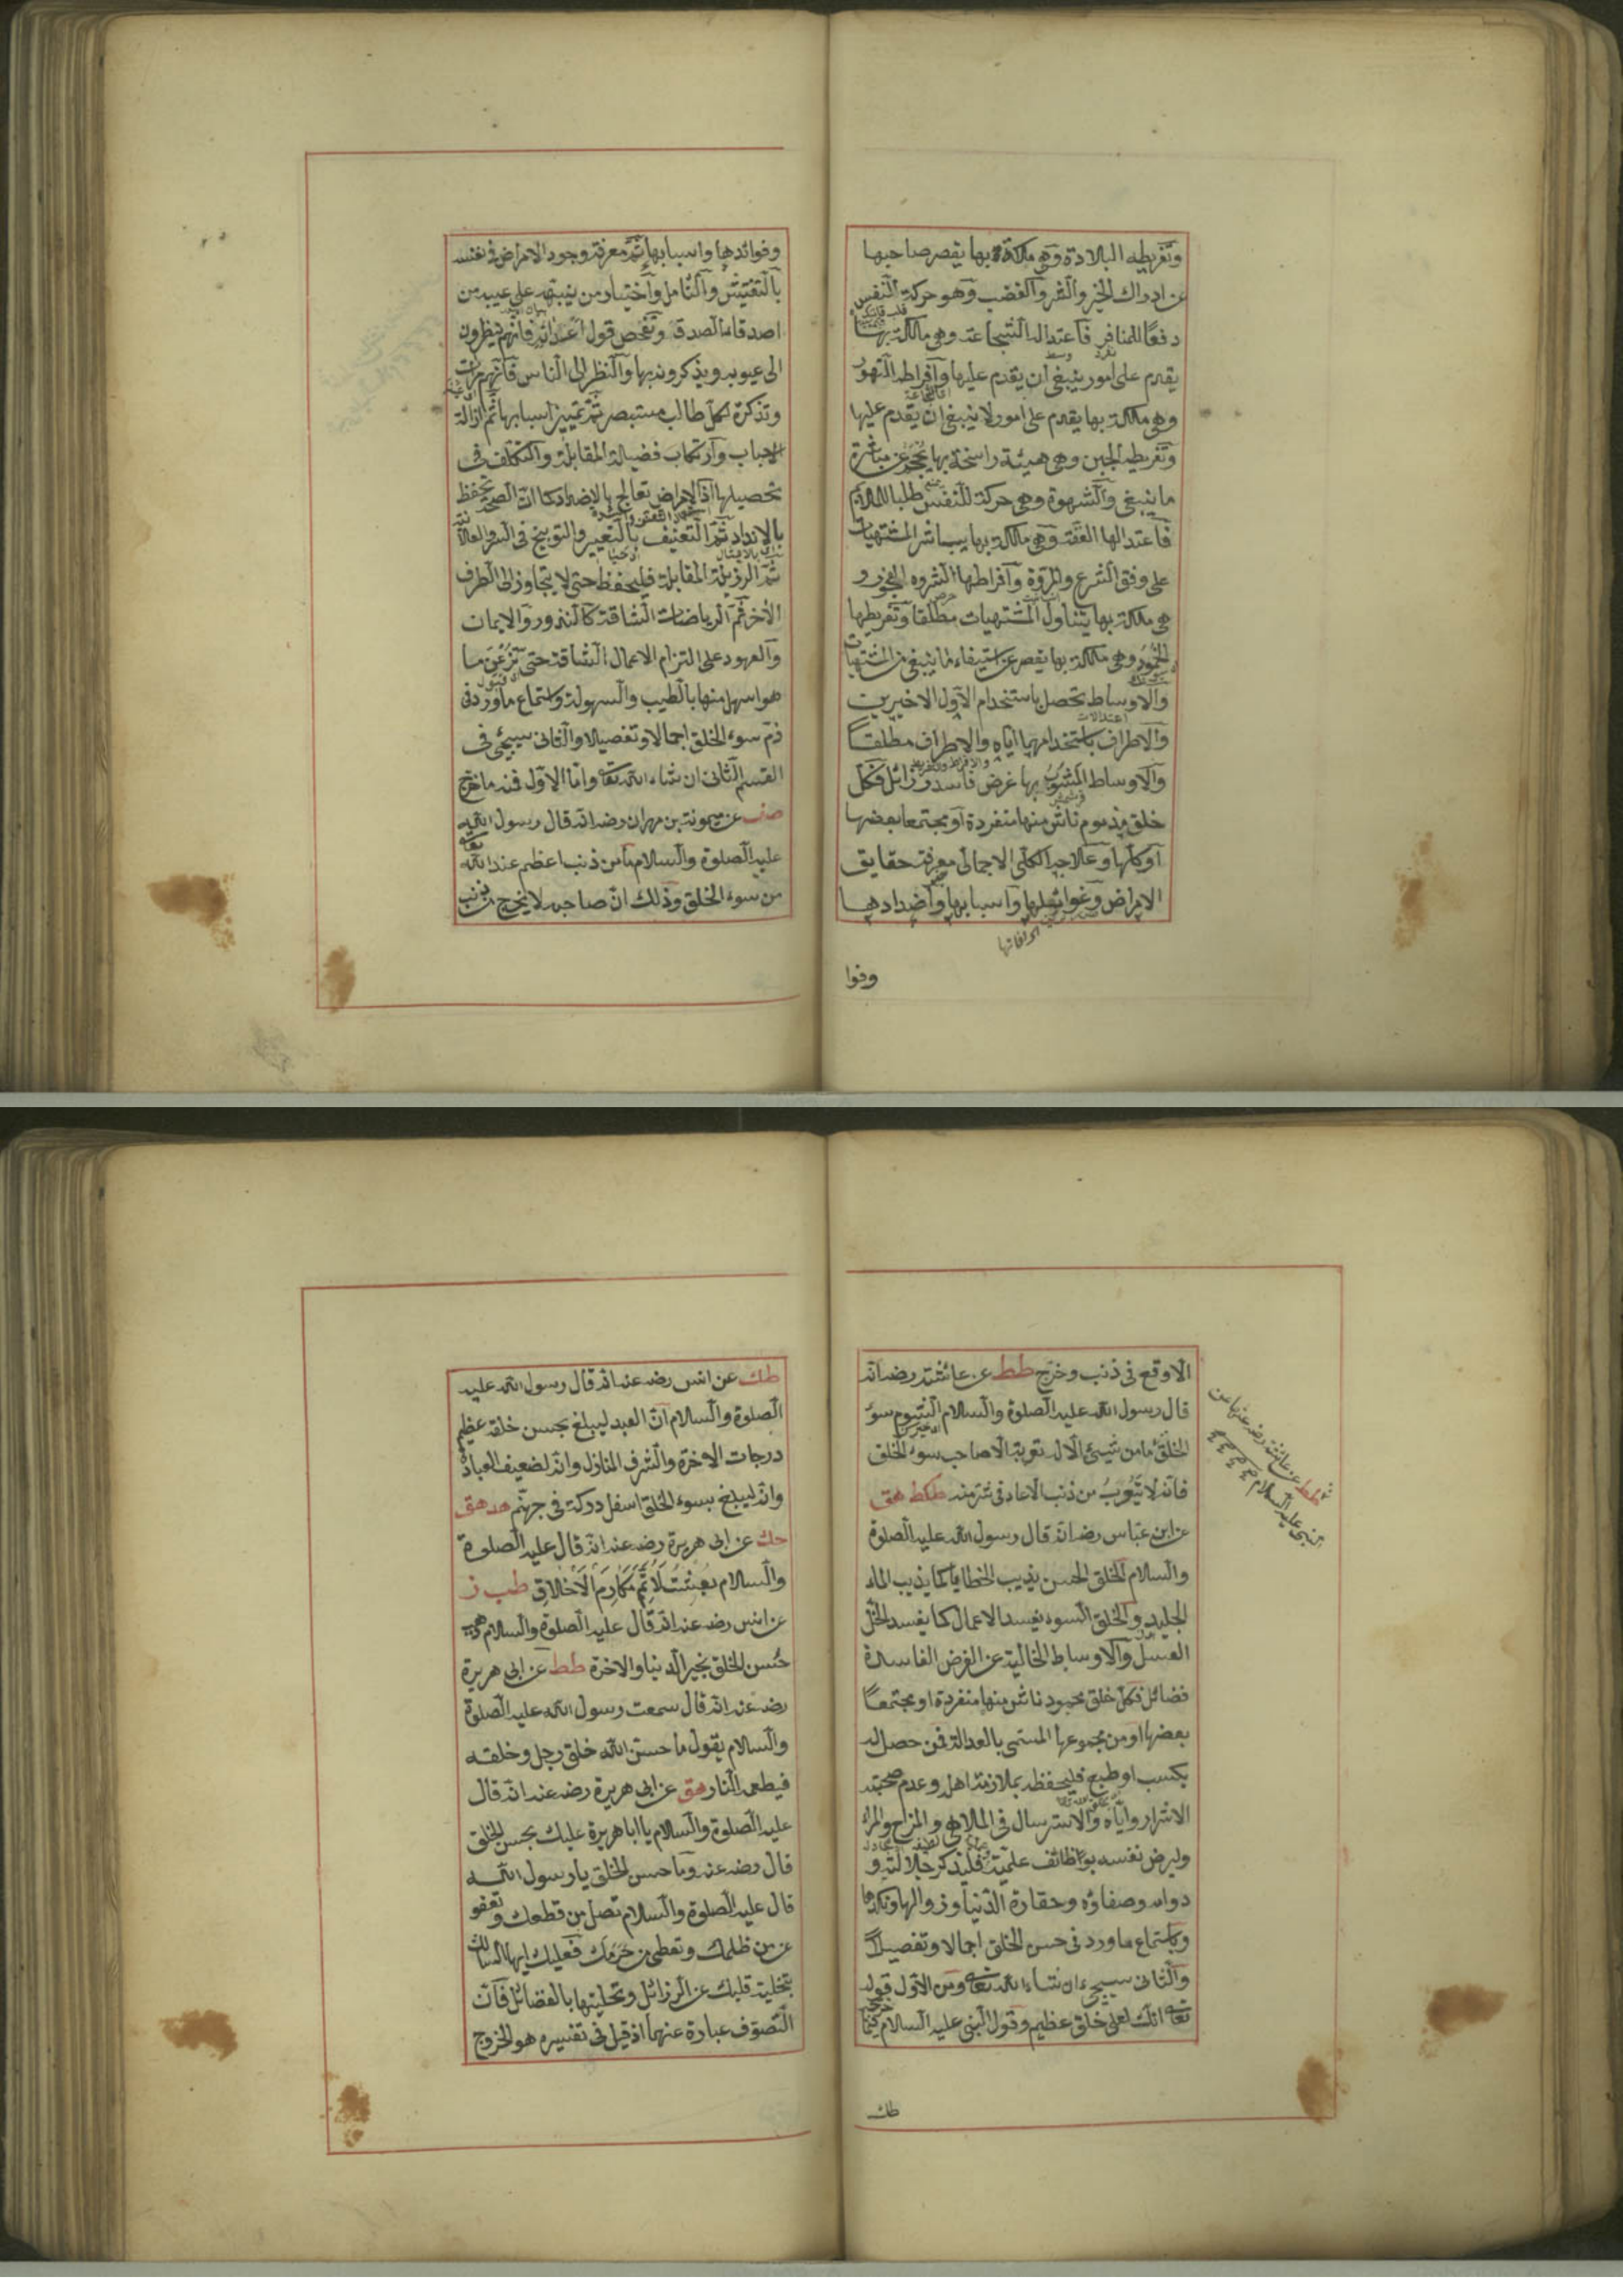 وتفريطه البلادة وهي ملكة بها يقصر صاحبها
عن ادراك الخير والشر والغضب وهو حركة النفس
دفعًا للمنافر فاعتداله الشجاعة وهي ملكة بها
يقدم على امور ينبغي ان يقدم عليها وافراطه التهور
وهي ملكة بها يقدم على امور لا ينبغي ان يقدم عليها
وتفريطه الجبن وهي هيئة راسخة بها يحجم عن مباشرة
ما ينبغي والشهوة وهي حركة للنفس طلبا للملائم
فاعتدالها العفة وهي ملكة بها يباشر المشتهيات
على وفق الشرع والمروّة وافراطها الشره والفجور و
هي ملكة بها يتناول المشتهيات مطلقا وتفريطها
الخمود وهي ملكة بها يقصر عن استيفاء ما ينبغي من المشتهيات
والاوساط تحصل باستخدام الاول الاخيرين
والاطراف باستخدامهما اياه والاطراف مطلقا
والاوساط المشوب بها غرض فاسد رزائل فكل
خلق مذموم ناش منها منفردة او مجتمعا بعضها
او كلها وعلاجه الكلي الاجمالي معرفة حقايق
الامراض وغوائلها واسبابها واضدادها
وفوا
وفوائدها واسبابها ثم معرفة وجود الامراض في نفسه
بالتفتيش والتأمل واختيار من ينبهه على عيبه من
اصدقاء الصدق وتفحص قول اعدائه فانهم ينظرون
الى عيوبه ويذكرونه بها والنظر الى الناس فانهم مرآت
وتذكرة لكل طالب مستبصر ثم تمييز اسبابها ثم ازالة
الاسباب وارتكاب فضيلة المقابلة والتكلف في
تحصيلها اذ الامراض تعالج بالاضداد كما ان الصحة تحفظ
بالانداد ثم التعنيف بالتعيير والتوبيخ في السر والعلانية
ثم الرزيلة المقابلة فليحفظ حتى لا يتجاوز الى الطرف
الاخر ثم الرياضات الشاقة كالنذور والايمان
والعهود على التزام الاعمال الشاقة حتى
هو اسهل منها بالطيب والسهولة واستماع ما ورد في
ذم سوء الخلق اجمالا وتفصيلا والثاني سيجئ في
القسم الثاني ان شاء الله تعالى واما الاول فمنه ما خرج
صف عن ميمونة بن مهران رضه انه قال رسول الله
عليه الصلوة والسلام ما من ذنب اعظم عند الله تعالى
من سوء الخلق وذلك ان صاحبه لا يخرج من ذنب
الا وقع في ذنب وخرج طط عن عائشة رضه انه
قال رسول الله عليه الصلوة والسلام الشوم سوء
الخلق ما من شيئ الا له توبة الا صاحب سوء الخلق
فانه لا يتوب من ذنب الا عاد في شر منه طكط هق
عن ابن عباس رضه انه قال رسول الله عليه الصلوة
والسلام الخلق الحسن يذيب الخطايا كما يذيب الماء
الجليد والخلق السوء يفسد الاعمال كما يفسد الخل
العسل والاوساط الخالية عن الغرض الفاسدة
فضائل فكل خلق محمود ناش منها منفردة او مجتمعا
بعضها او من مجموعها المسمى بالعدالة فمن حصل له
بكسب او طبع فليحفظه بملازمة اهله وعدم صحبة
الاشرار واياه والاسترسال في الملاهي والمزاح والمراء
وليرض نفسه بوظائف علمية فليذكر جلالته و
دوامه وصفاؤه وحقارة الدنيا وزوالها ونكدها
وباستماع ما ورد في حسن الخلق اجمالا وتفصيلا
والثاني سيجيء ان شاء الله تعالى ومن الاول قوله
تعالى انك لعلى خلق عظيم وقول النبي عليه السلام
طط عن عائشة رضه عنها عن
النبي عليه السلام
طك
طك عن انس رضه عنه انه قال رسول الله عليه
الصلوة والسلام ان العبد ليبلغ بحسن خلقه عظيم
درجات الاخرة والشرف المنازل وانه لضعيف العبادة
وانه ليبلغ بسوء الخلق اسفل دركة في جهنم حد هق
حك عن ابى هريرة رضه عنه انه قال عليه الصلوة
والسلام بعثت لاتمم مكارم الاخلاق طب ز
عن انس رضه عنه انه قال عليه الصلوة والسلام
حسن الخلق بخير الدنيا والاخرة طط عن ابى هريرة
رضه عنه انه قال سمعت رسول الله عليه الصلوة
والسلام يقول ما حسن الله خلق رجل وخلقه
فيطعمه النار هق عن ابى هريرة رضه عنه انه قال
عليه الصلوة والسلام يا ابا هريرة عليك بحسن الخلق
قال رضه عنه وما حسن الخلق يا رسول الله
قال عليه الصلوة والسلام تصل من قطعك وتعفو
عن من ظلمك وتعطى من حرمك فعليك ايها السالك
بتخلية قلبك عن الرزائل وتحليتها بالفضائل فان
التصوف عبارة عنهما اذ قيل في تفسيره هو الخروج